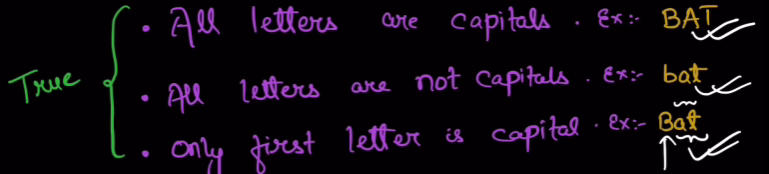 • All letters are capitals. Ex:- BAT
True
• All letters are not capitals. Ex:- bat
• only first letter is capital. Ex:- Bat